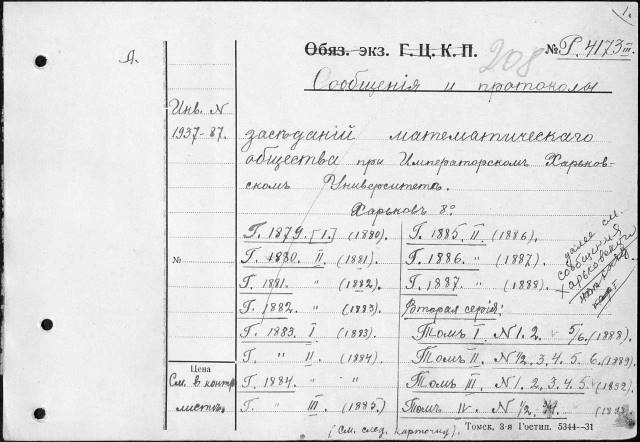 1.
А.
Обяз. экз. Г. Ц. К. П.
208
№ Р. 4173 III.
Сообщенія и протоколы
Инв. N
1937-87.
засѣданій математическаго
общества при Императорскомъ Харьков-
скомъ Университетѣ.
Харьковъ 8º
Г. 1879. [I.] (1880).
Г. 1880. II. (1881)
Г. 1881. (1882).
Г. 1882. (1883)
Г. 1883. I (1883).
Г. " II (1884).
Г. 1884. " "
Г. " III (1885).
Г. 1885. II (1886).
Г. 1886. " (1887).
Г. 1887. " (1888).
Вторая серія:
Томъ I. N 1. 2. 5/6. (1888).
Томъ II. N 1/2. 3. 4. 5. 6. (1889)
Томъ III. N 1. 2. 3. 4. 5.
Томъ IV. N 1/2.
далее см.
сообщения
Харьковский
№
Цена
См. в контр
листкѣ.
(См. след. карточку).
Томск, 3-я Гостип. 5344—31